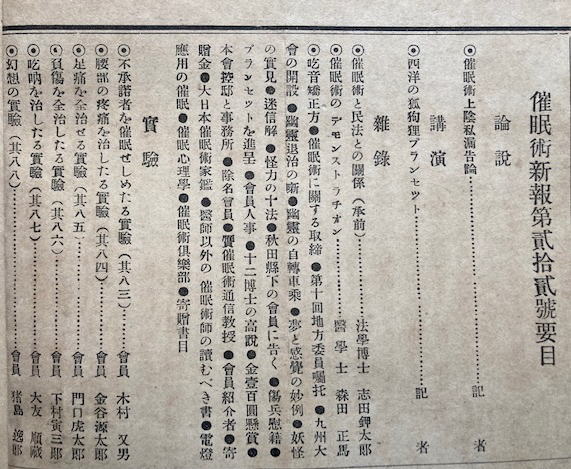 催眠術新報第貳拾貳號要目
論説
◉催眠術上陰私漏告論……………………………記者
講演
◉西洋の狐狗狸プランセット……………………………記者
雜錄
◉催眠術と民法との關係（承前）……………法學博士 志田鉀太郎
◉催眠術のデモンストラチオン……………醫學士 森田正馬
●吃音矯正方●催眠術に關する取締●第十回地方委員囑托●九州大
會の開設●幽靈退治の噺●幽靈の自轉車乘●夢と感覺の妙例●妖怪
の實見●迷信解●怪力の十法●秋田縣下の會員に告く●傷兵慰藉●
プランセットを進呈●會員人事●十二博士の高説●金壹百圓懸賞●
本會控邸と事務所●除名會員●實催眠術通信教授●會員紹介者●寄
贈金●大日本催眠術家鑑●醫師以外の催眠術師の讀むべき書●電燈
應用の催眠●催眠心理學●催眠術俱樂部●寄贈書目
實驗
◉不承諾者を催眠せしめたる實驗（其八三）……會員 木村又男
◉腰部の疼痛を治したる實驗（其八四）……會員 金谷源太郎
◉足痛を全治せる實驗（其八五）……會員 門口虎太郎
◉負傷を全治したる實驗（其八六）……會員 下村寅三郎
◉吃吶を治したる實驗（其八七）……會員 大友順藏
◉幻想の實驗（其八八）……會員 猪島逸郎